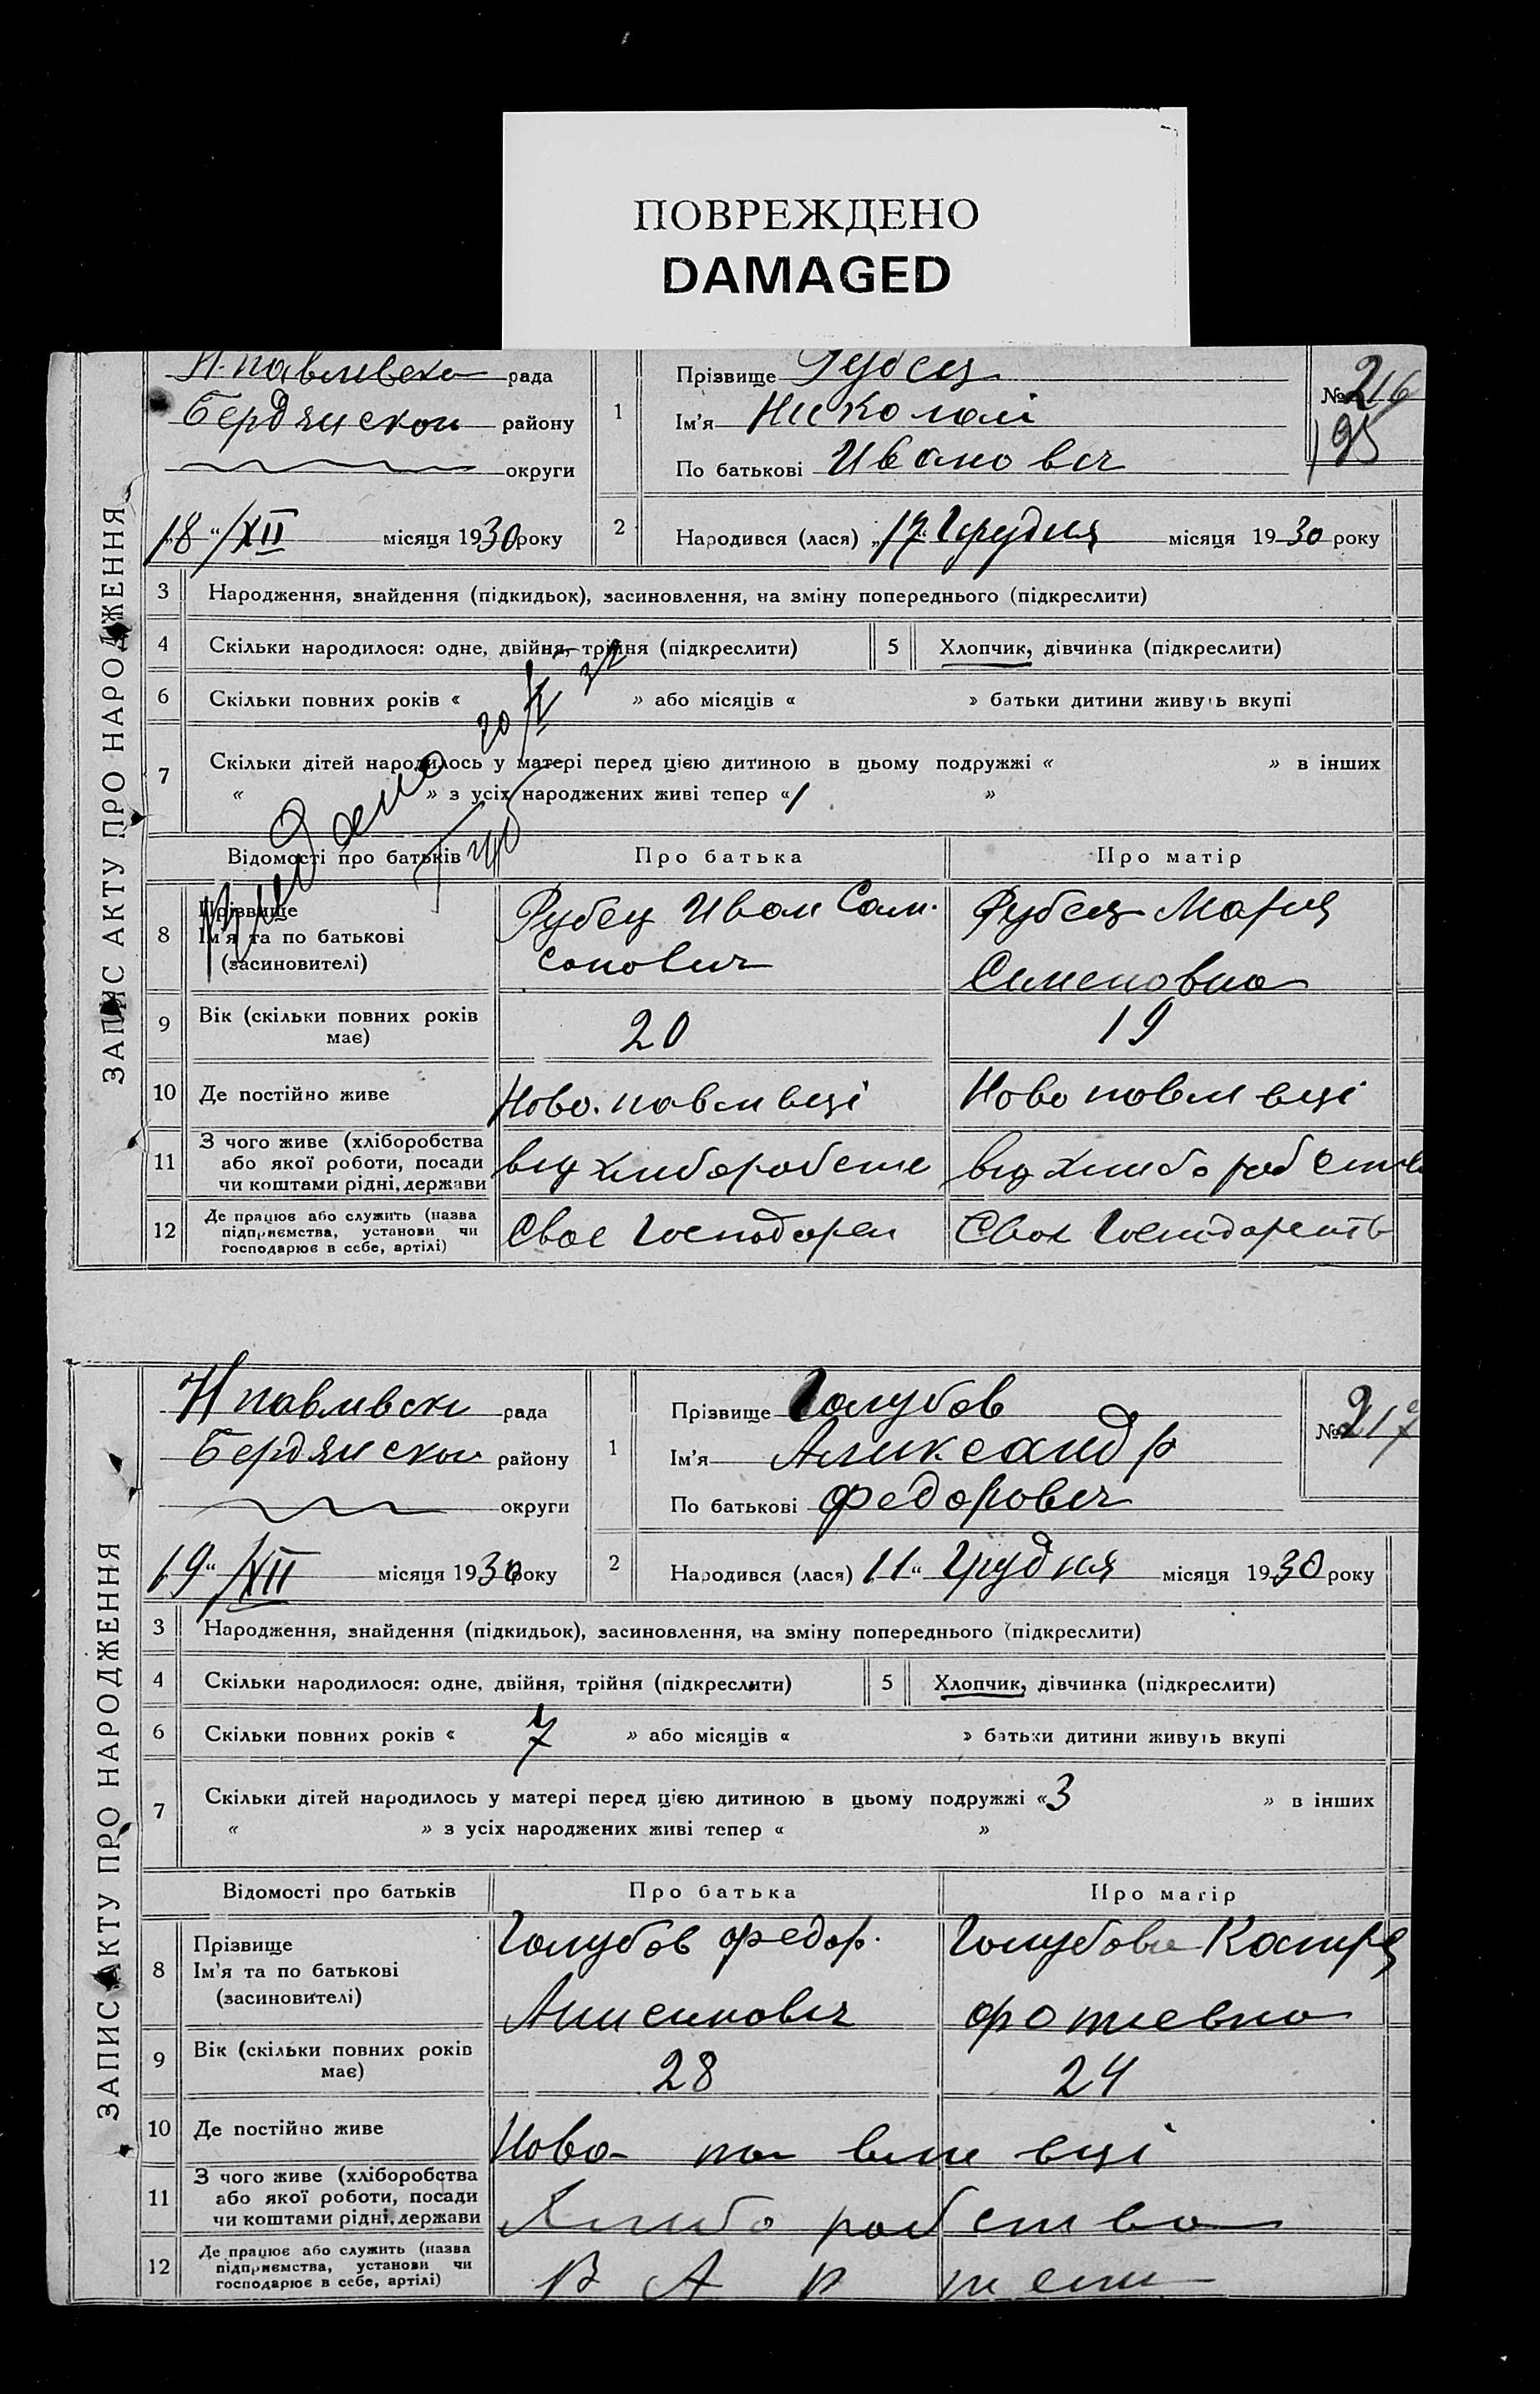 ПОВРЕЖДЕНО
DAMAGED
ЗАПИС АКТУ ПРО НАРОДЖЕННЯ
Н-павливска рада
Бердянскои району
округи
„18“/XII місяця 1930 року
1
Прізвище Рубец
Ім'я Николаі
По батькові Иванович
№ 216
195
2
Народився (лася) „17“ Грудня місяця 1930 року
3 Народження, знайдення (підкидьок), засиновлення, на зміну попереднього (підкреслити)
4 Скільки народилося: одне, двійня, трійня (підкреслити) 5 Хлопчик, дівчинка (підкреслити)
6 Скільки повних років « » або місяців « » батьки дитини живуть вкупі
7 Скільки дітей народилось у матері перед цією дитиною в цьому подружжі « » в інших
« » з усіх народжених живі тепер «1 »
Відомості про батьків Про батька Про матір
8 Прізвище
Ім'я та по батькові
(засиновителі)
Рубец Иван Сам.
сонович
Рубец Мария
Семеновна
9 Вік (скільки повних років
має)
20 19
10 Де постійно живе Ново-павливці Ново павливці
11 З чого живе (хліборобства
або якої роботи, посади
чи коштами рідні, держави
від хлиборобств від хлиборобство
12 Де працює або служить (назва
підприємства, установи чи
господарює в себе, артілі)
Свое Господарси Свое Господарсть
ЗАПИС АКТУ ПРО НАРОДЖЕННЯ
Н павливски рада
Бердянскои району
округи
„19“/XII місяця 1930 року
1
Прізвище Голубов
Ім'я Александр
По батькові Федорович
№ 217
2
Народився (лася) „11“ Грудня місяця 1930 року
3 Народження, знайдення (підкидьок), засиновлення, на зміну попереднього (підкреслити)
4 Скільки народилося: одне, двійня, трійня (підкреслити) 5 Хлопчик, дівчинка (підкреслити)
6 Скільки повних років « 7 » або місяців « » батьки дитини живуть вкупі
7 Скільки дітей народилось у матері перед цією дитиною в цьому подружжі «3 » в інших
« » з усіх народжених живі тепер « »
Відомості про батьків Про батька Про матір
8 Прізвище
Ім'я та по батькові
(засиновителі)
Голубов Федор.
Анисимович
Голубова
Фотиевна
9 Вік (скільки повних років
має)
28 24
10 Де постійно живе Ново-павливці
11 З чого живе (хліборобства
або якої роботи, посади
чи коштами рідні, держави
Хлиборобство
12 Де працює або служить (назва
підприємства, установи чи
господарює в себе, артілі)
В Артели